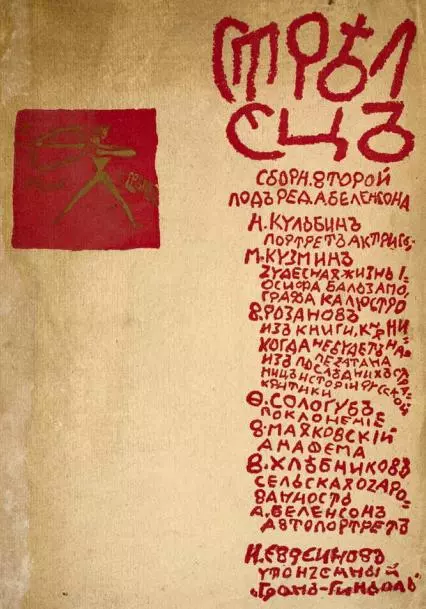 СТРѢЛ
ЕЦЪ
СБОРН. ВТОРОЙ
ПОДЪ РЕД. А. БЕЛЕНСОНА
Н. КУЛЬБИНЪ
ПОРТРЕТЪ АКТРИСЫ
М. КУЗМИНЪ
ЧУДЕСНАЯ ЖИЗНЬ I-
ОСИФА БАЛЬЗАМО,
ГРАФА КАЛIОСТРО
В. РОЗАНОВЪ
ИЗЪ КНИГИ, НИ
КОГДА НЕ БУДЕТЪ НА
ПЕЧАТАНА
ИЗЪ ПОСЛѢДНИХЪ СТРА
НИЦЪ ИСТОРIИ РУССКОЙ
КРИТИКИ
Ѳ. СОЛОГУБЪ
ПОКЛОНЕНIЕ
В. МАЯКОВСКIЙ
АНАФЕМА
В. ХЛѢБНИКОВЪ
СЕЛЬСКАЯ ОЧАРО-
ВАННОСТЬ
А. БЕЛЕНСОНЪ
АВТОПОРТРЕТЪ
Н. ЕВРЕИНОВЪ
УТОНЧЕННЫЙ
„ГРАНЪ-ГИНЬОЛЬ"